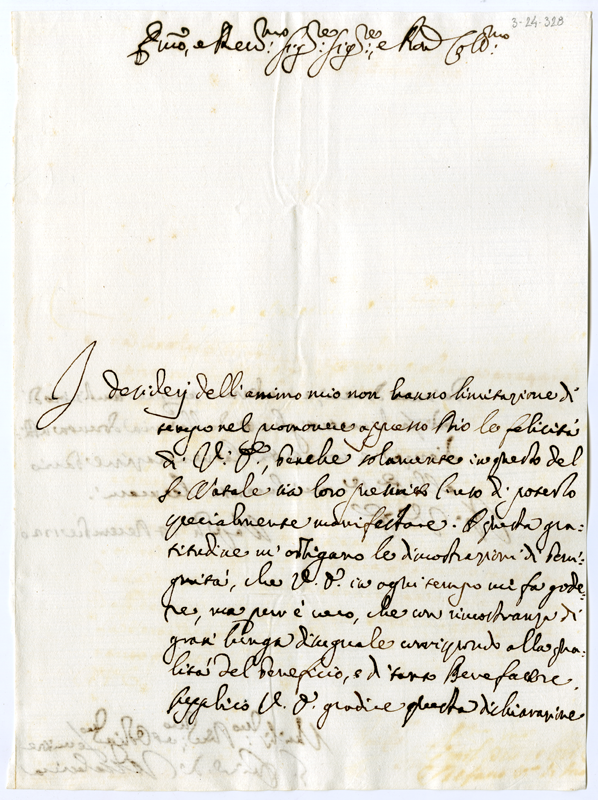 3-24-328
Em̃o, e Rev.mo Sig.re Sig.re, e Pad. Col.mo
I desiderij dell'animo mio non hanno limitazione di
tempo nel promovere appresso Dio le felicità
di V. Em.a, benche solamente in questo del
S. Natale sia loro permesso l'uso di poterlo
specialmente manifestare. A questa gra-
titudine m'obligano le dimostrazioni di beni-
gnità, che V. Em.a in ogni tempo mi fa gode-
re, ma però è vero, che con rimostranze di
gran lunga disuguale corrispondo alla qua-
lità del beneficio, e di tanto Benefattore.
Supplico V. Em.a gradire questa dichiarazione